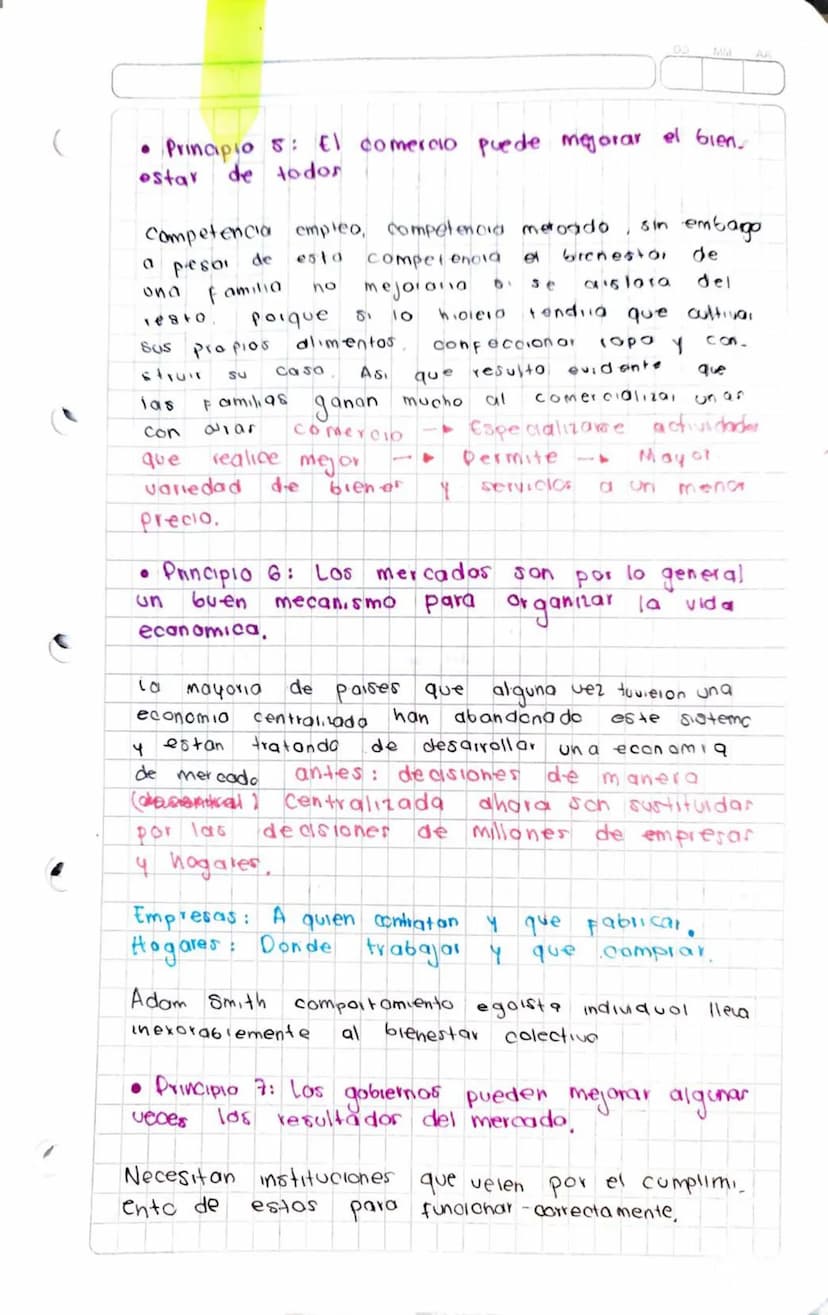 DD MM AA
• Principio 5: El comercio puede mejorar el bien-
estar de todos
Competencia empleo, competencia mercado, sin embago
a pesar de esta competencia el bienestar de
una familia no mejoraria si se aislara del
resto. Porque si lo hiciera tendria que cultivar
sus propios alimentos, confeccionar ropa y con-
struir su casa. Asi que resulta evidente que
las familias ganan mucho al comercializar unas
con otras comercio → Especializarse actividades
que realice mejor → Permite → Mayor
variedad de bienes y servicios a un menor
precio.
• Principio 6: Los mercados son por lo general
un buen mecanismo para organizar la vida
economica.
La mayoria de paises que alguna vez tuvieron una
economia centralizada han abandonado este sistema
y estan tratando de desarrollar una economia
de mercado antes: decisiones de manera
centralizada ahora son sustituidas
por las decisiones de millones de empresas
y hogares.
Empresas: A quien contratan y que fabricar.
Hogares: Donde trabajar y que comprar.
Adam Smith comportamiento egoista individual lleva
inexorablemente al bienestar colectivo
• Principio 7: Los gobiernos pueden mejorar algunas
veces los resultados del mercado.
Necesitan instituciones que velen por el cumplimi-
ento de estos para funcionar correctamente.